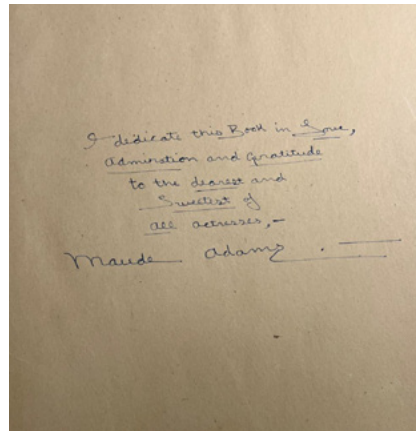 I dedicate this Book in Love,
Admiration and Gratitude
to the dearest and
Sweetest of
all actresses,—
Maude Adams.